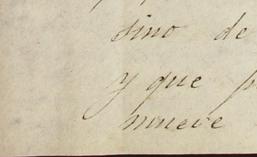 sino de
y que p
mueve